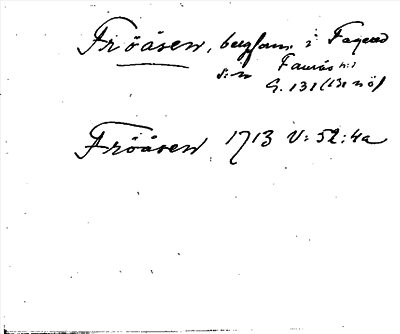 Fröåsen, bergsam. i Fagered
s:n Faurås h:d
G. 131 (131 nö)
Fröåsen 1713 V: 52: 4a